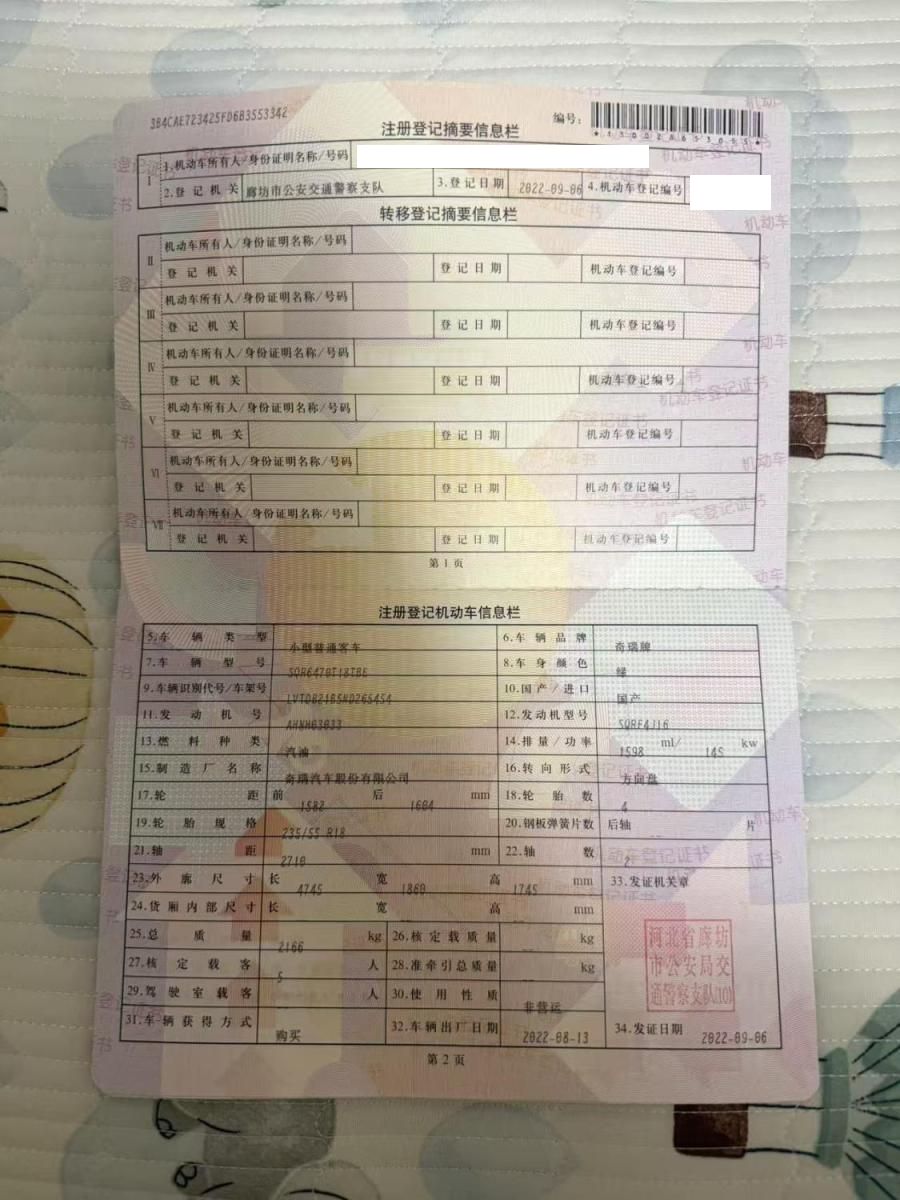 3B4CAE723425FD6B3553342
编号：
*130020653055*
注册登记摘要信息栏
I 1.机动车所有人/身份证明名称/号码
2.登记机关 廊坊市公安交通警察支队 3.登记日期 2022-09-06 4.机动车登记编号
转移登记摘要信息栏
II 机动车所有人/身份证明名称/号码
登记机关 登记日期 机动车登记编号
III 机动车所有人/身份证明名称/号码
登记机关 登记日期 机动车登记编号
IV 机动车所有人/身份证明名称/号码
登记机关 登记日期 机动车登记编号
V 机动车所有人/身份证明名称/号码
登记机关 登记日期 机动车登记编号
VI 机动车所有人/身份证明名称/号码
登记机关 登记日期 机动车登记编号
VII 机动车所有人/身份证明名称/号码
登记机关 登记日期 机动车登记编号
第1页
注册登记机动车信息栏
5.车辆类型 小型普通客车 6.车辆品牌 奇瑞牌
7.车辆型号 8.车身颜色 绿
9.车辆识别代号/车架号 10.国产/进口 国产
11.发动机号 12.发动机型号 SQRF4J16
13.燃料种类 汽油 14.排量/功率 1598 ml/ 145 kw
15.制造厂名称 奇瑞汽车股份有限公司 16.转向形式 方向盘
17.轮距 前 1582 后 1604 mm 18.轮胎数 4
19.轮胎规格 235/55 R18 20.钢板弹簧片数 后轴 片
21.轴距 2710 mm 22.轴数 2
23.外廓尺寸 长 4745 宽 1860 高 1745 mm 33.发证机关章
24.货厢内部尺寸 长 宽 高 mm
25.总质量 2166 kg 26.核定载质量 -- kg
27.核定载客 5 人 28.准牵引总质量 -- kg
29.驾驶室载客 人 30.使用性质 非营运
31.车辆获得方式 购买 32.车辆出厂日期 2022-08-13 34.发证日期 2022-09-06
河北省廊坊
市公安局交
通警察支队(10)
第2页